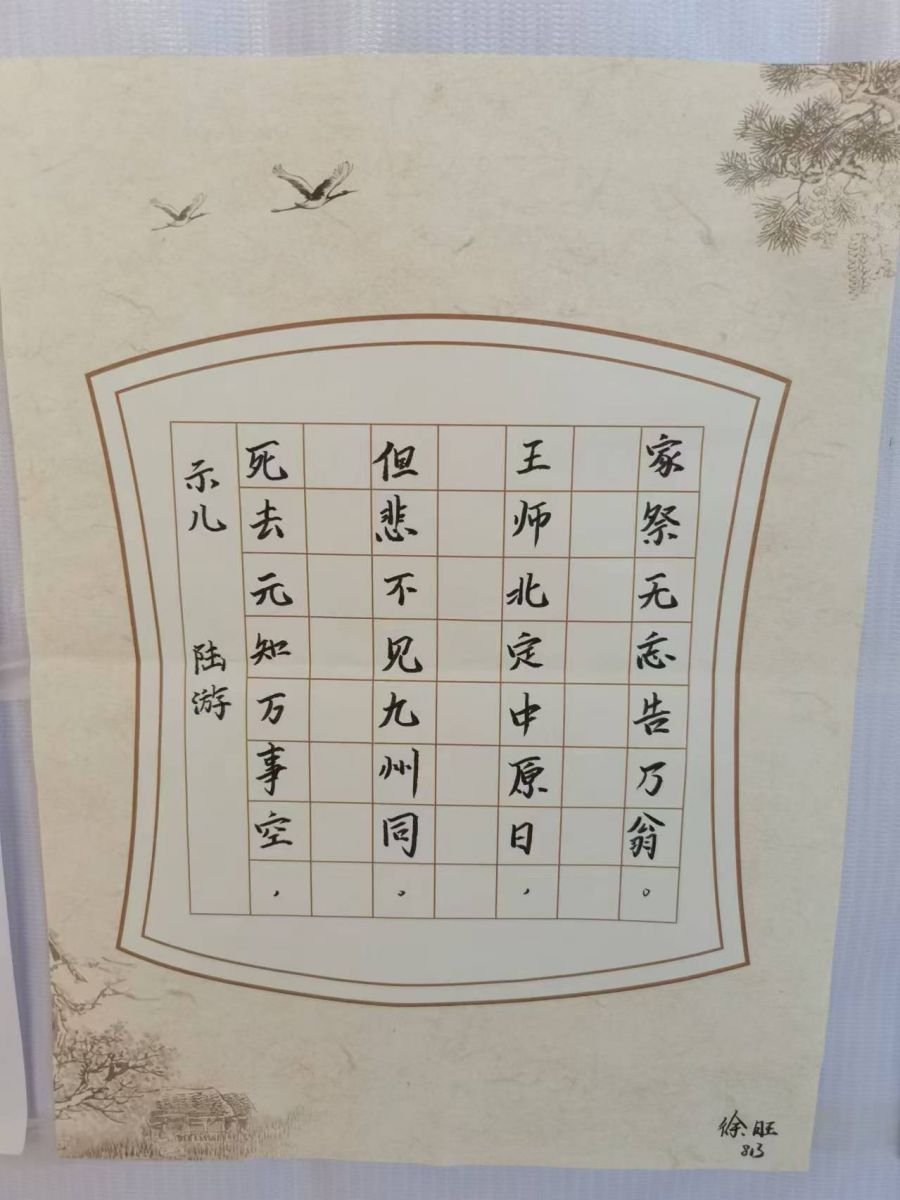 示儿 陆游
死去元知万事空，
但悲不见九州同。
王师北定中原日，
家祭无忘告乃翁。
徐旺
813